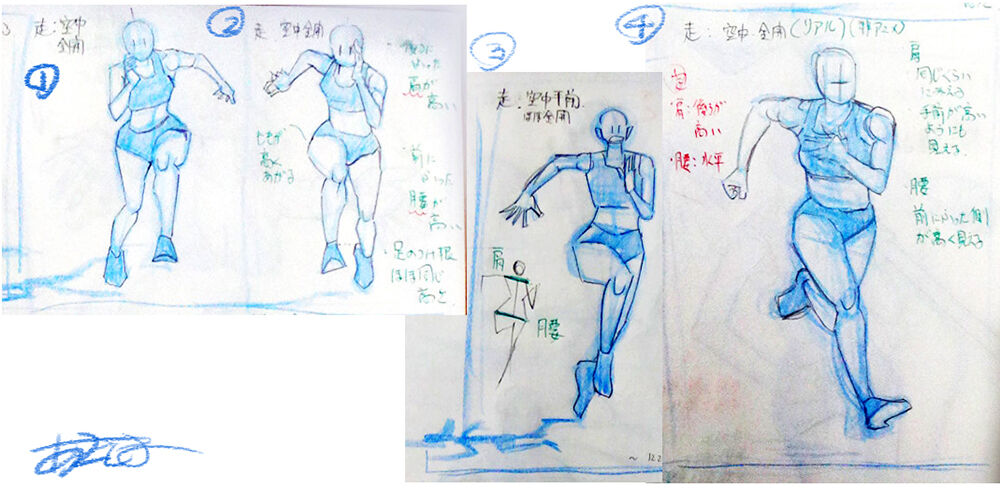 ①
走:空中
全開
②
走 空中全開
後ろに
なった
肩が
高い
ももが
高く
あがる
・前に
なった
腰が
高い
・足のつけ根
ほぼ同じ
高さ
③
走:空中手前
ほぼ全開
肩
腰
~ 122
④
走:空中・全開(リアル)(非アニメ)
肩:後ろが
高い
・腰:水平
肩
同じくらい
にみえる
手前が高い
ようにも
見える。
腰
前にふった側
が高く見える